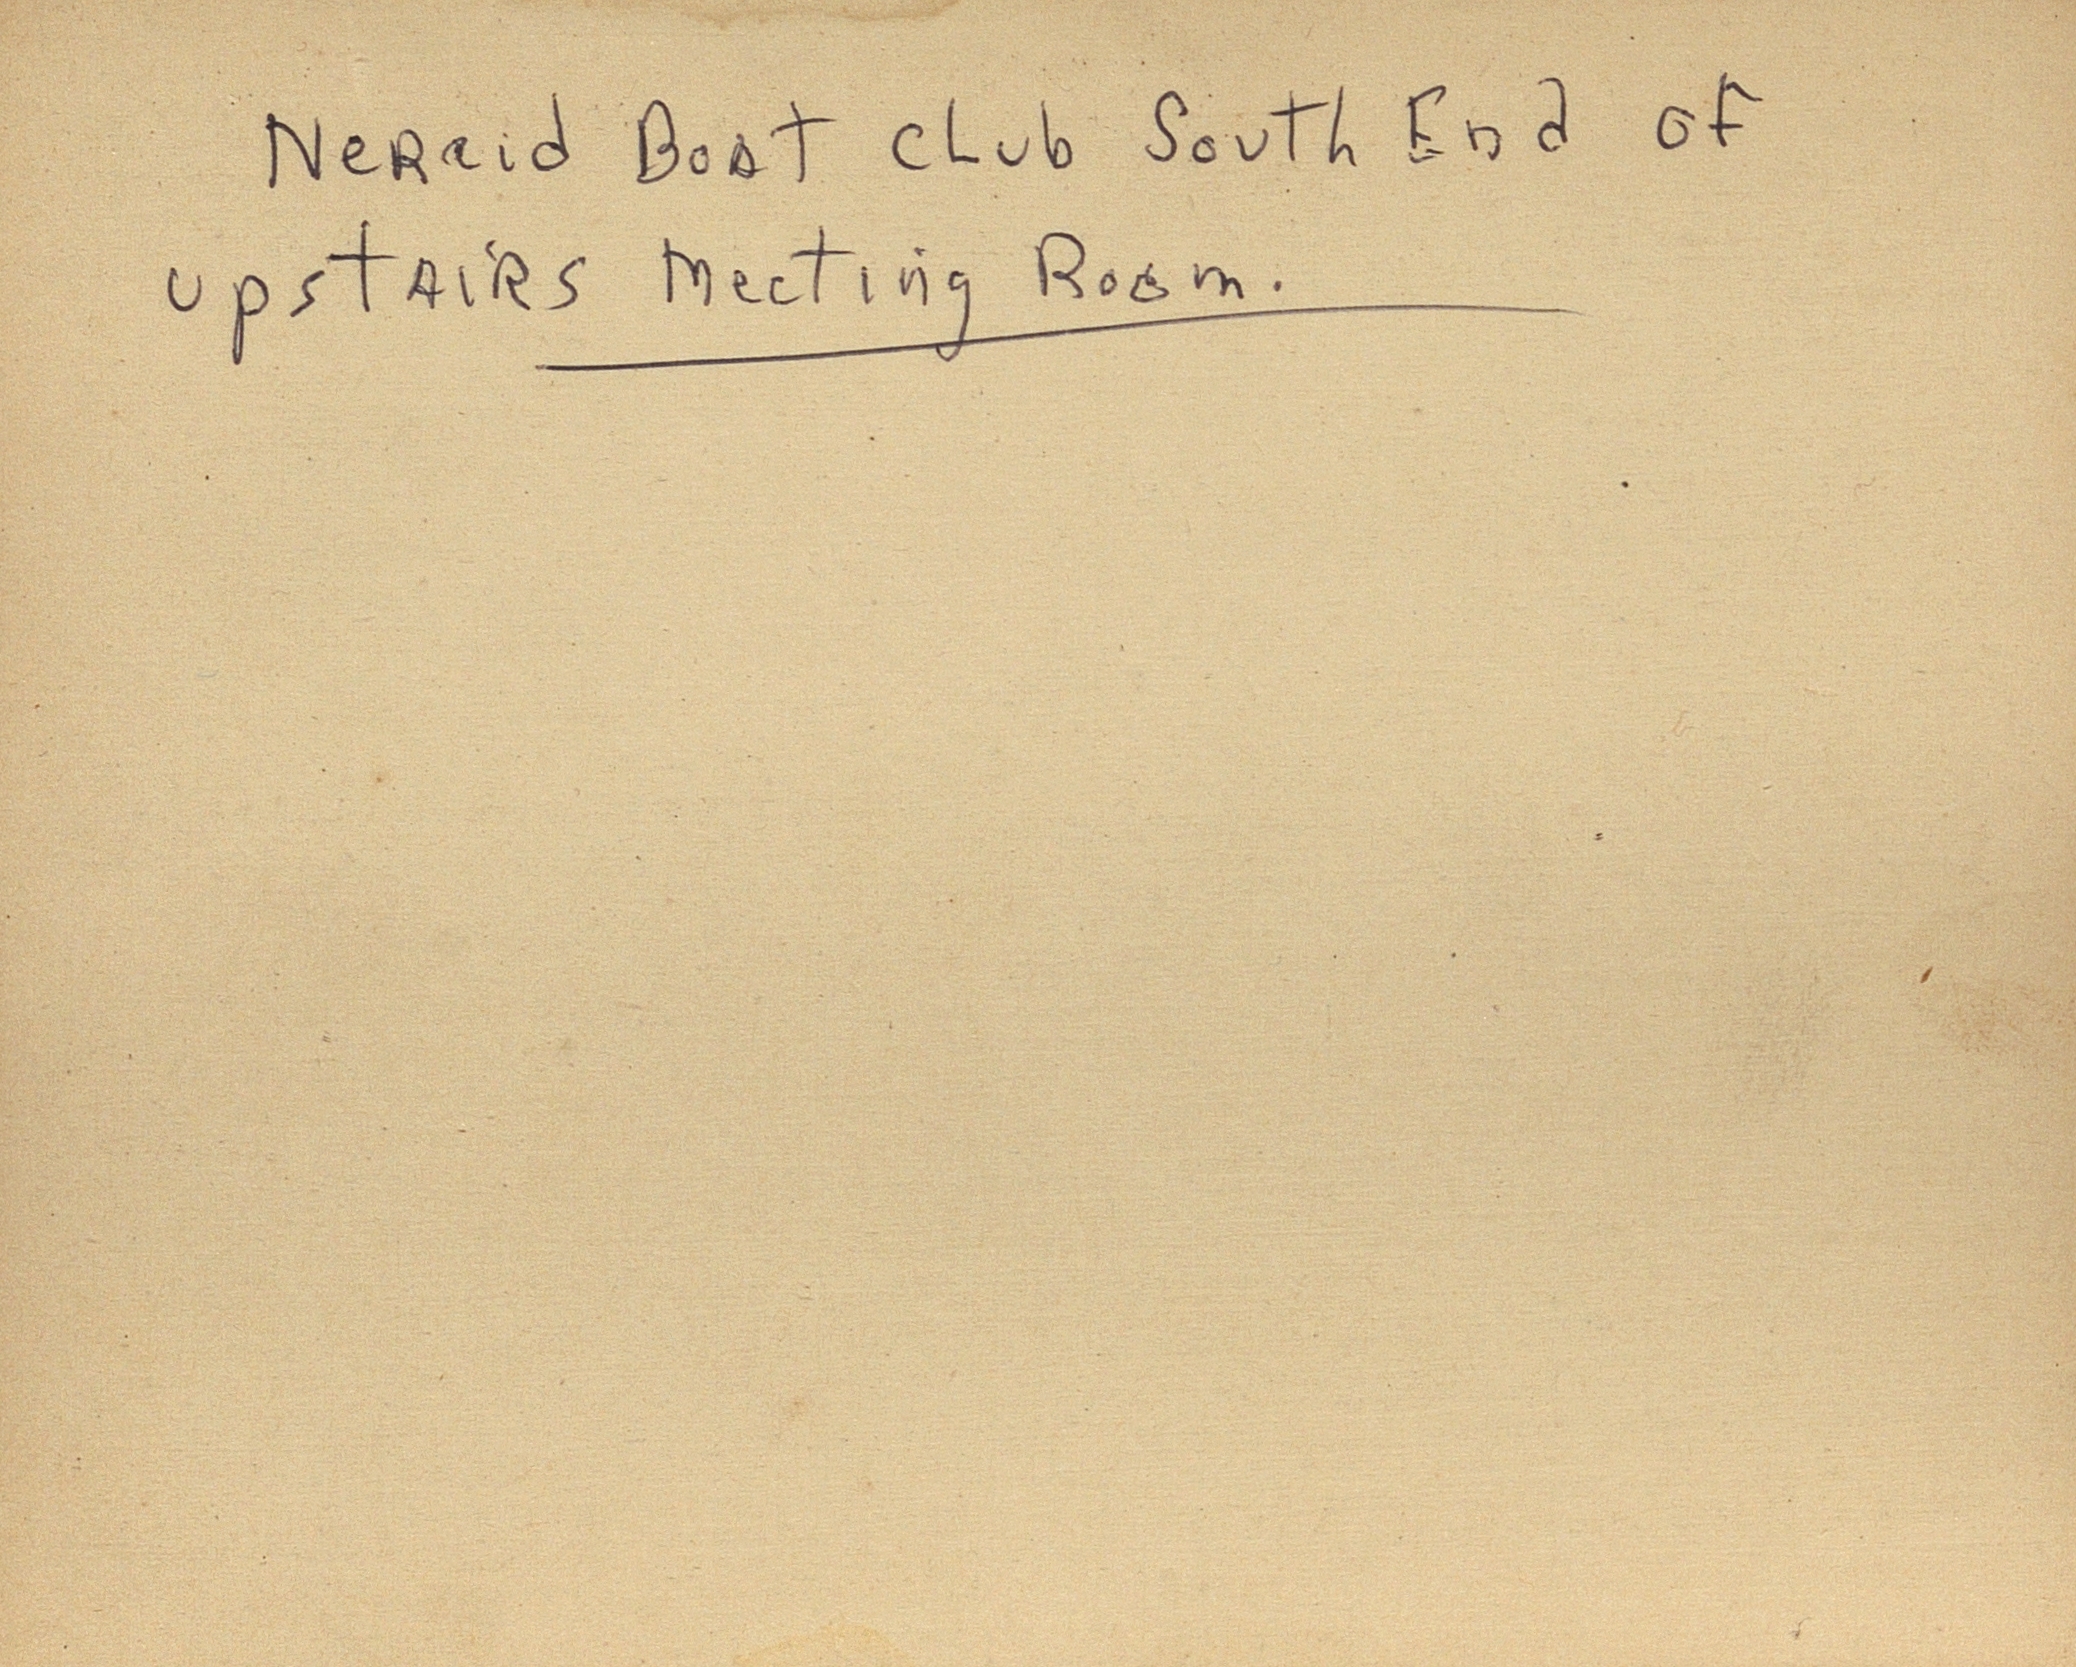 NeReid Boat cLub South End of
upstAiRs Meeting Room.